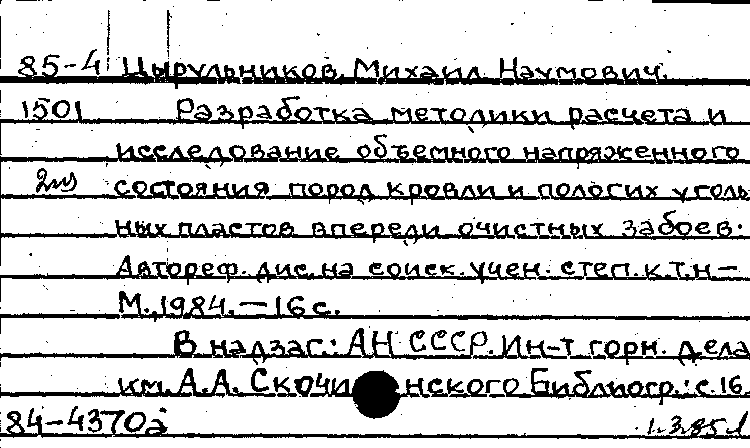 85-4 Цырульников, Михаил Наумович.
1501 Разработка методики расчета и
исследование объемного напряженного
2 состояния пород кровли и пологих уголь
ных пластов впереди очистных забоев.
Автореф. дис. на соиск. учен. степ. к.т.н –
М., 1984. – 16 с.
В надзаг.: АН СССР. Ин-т горн. дела
им. А.А. Скочинского Библиогр.: с. 16
84-4370а 1.3.85